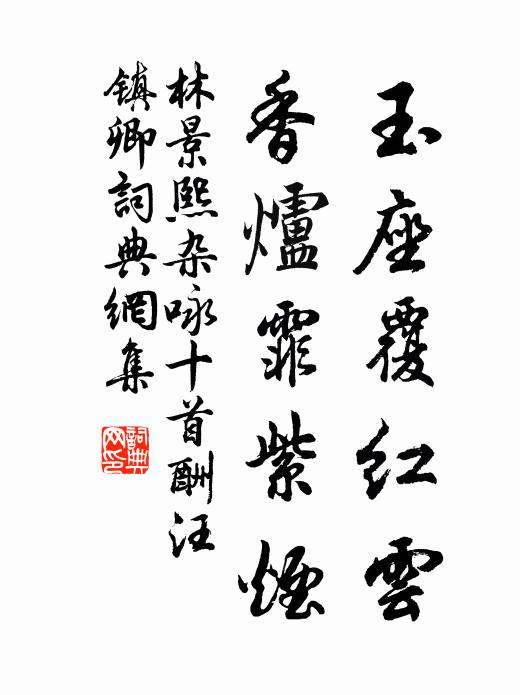 玉座覆紅雲
香爐霏紫煙
林景熙杂咏十首酬汪
镇卿詞典網集
詞典网印